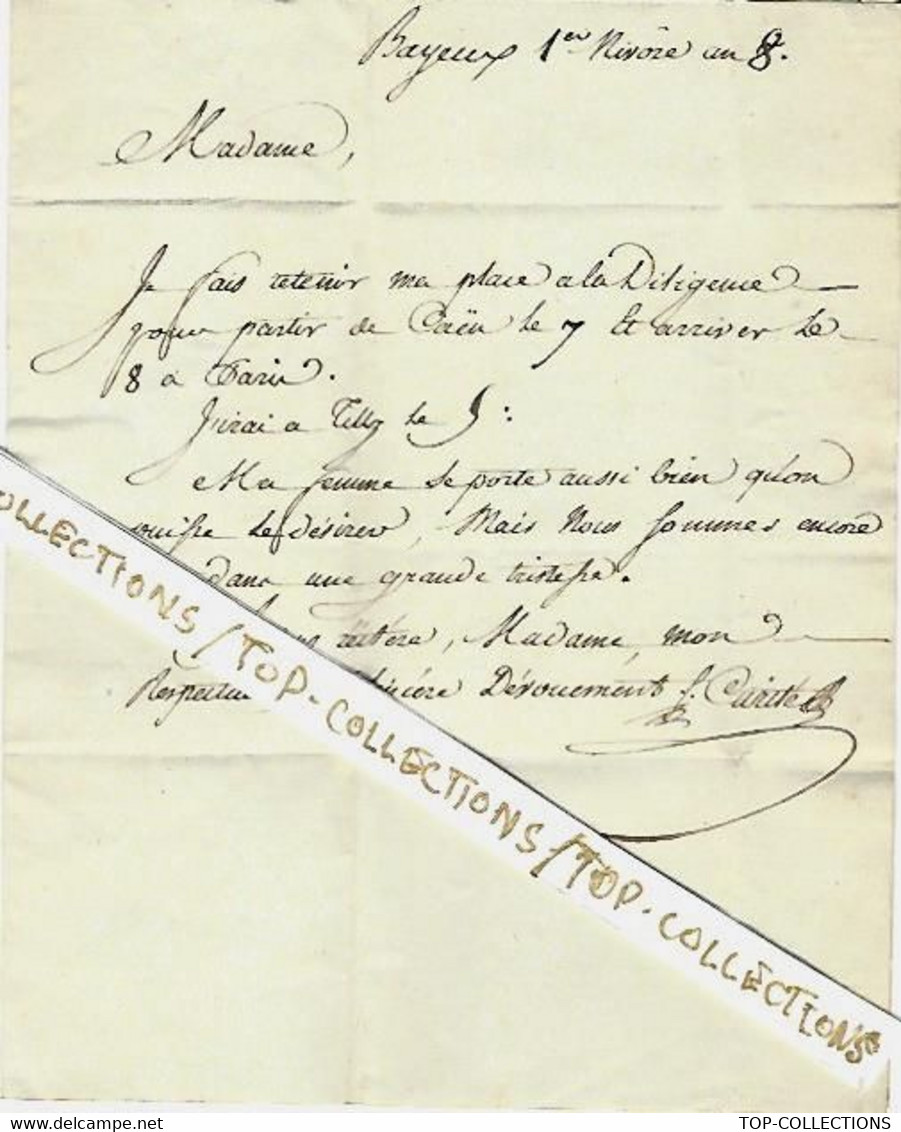 Bayeux 1er Nivôse an 8.
Madame,
Je fais retenir ma place a la Diligence
pour partir de Caën le 7 Et arriver le
8 a Paris.
J'irai a Tilly le 5:
Ma femme se porte aussi bien qu'on
puisse le désirer, Mais Nous sommes encore
dans une grande tristesse.
réitère, Madame, mon
Respectueux Sincère Dévouement
COLLECTIONS / TOP-COLLECTIONS / TOP-COLLECTIONS
TOP-COLLECTIONS